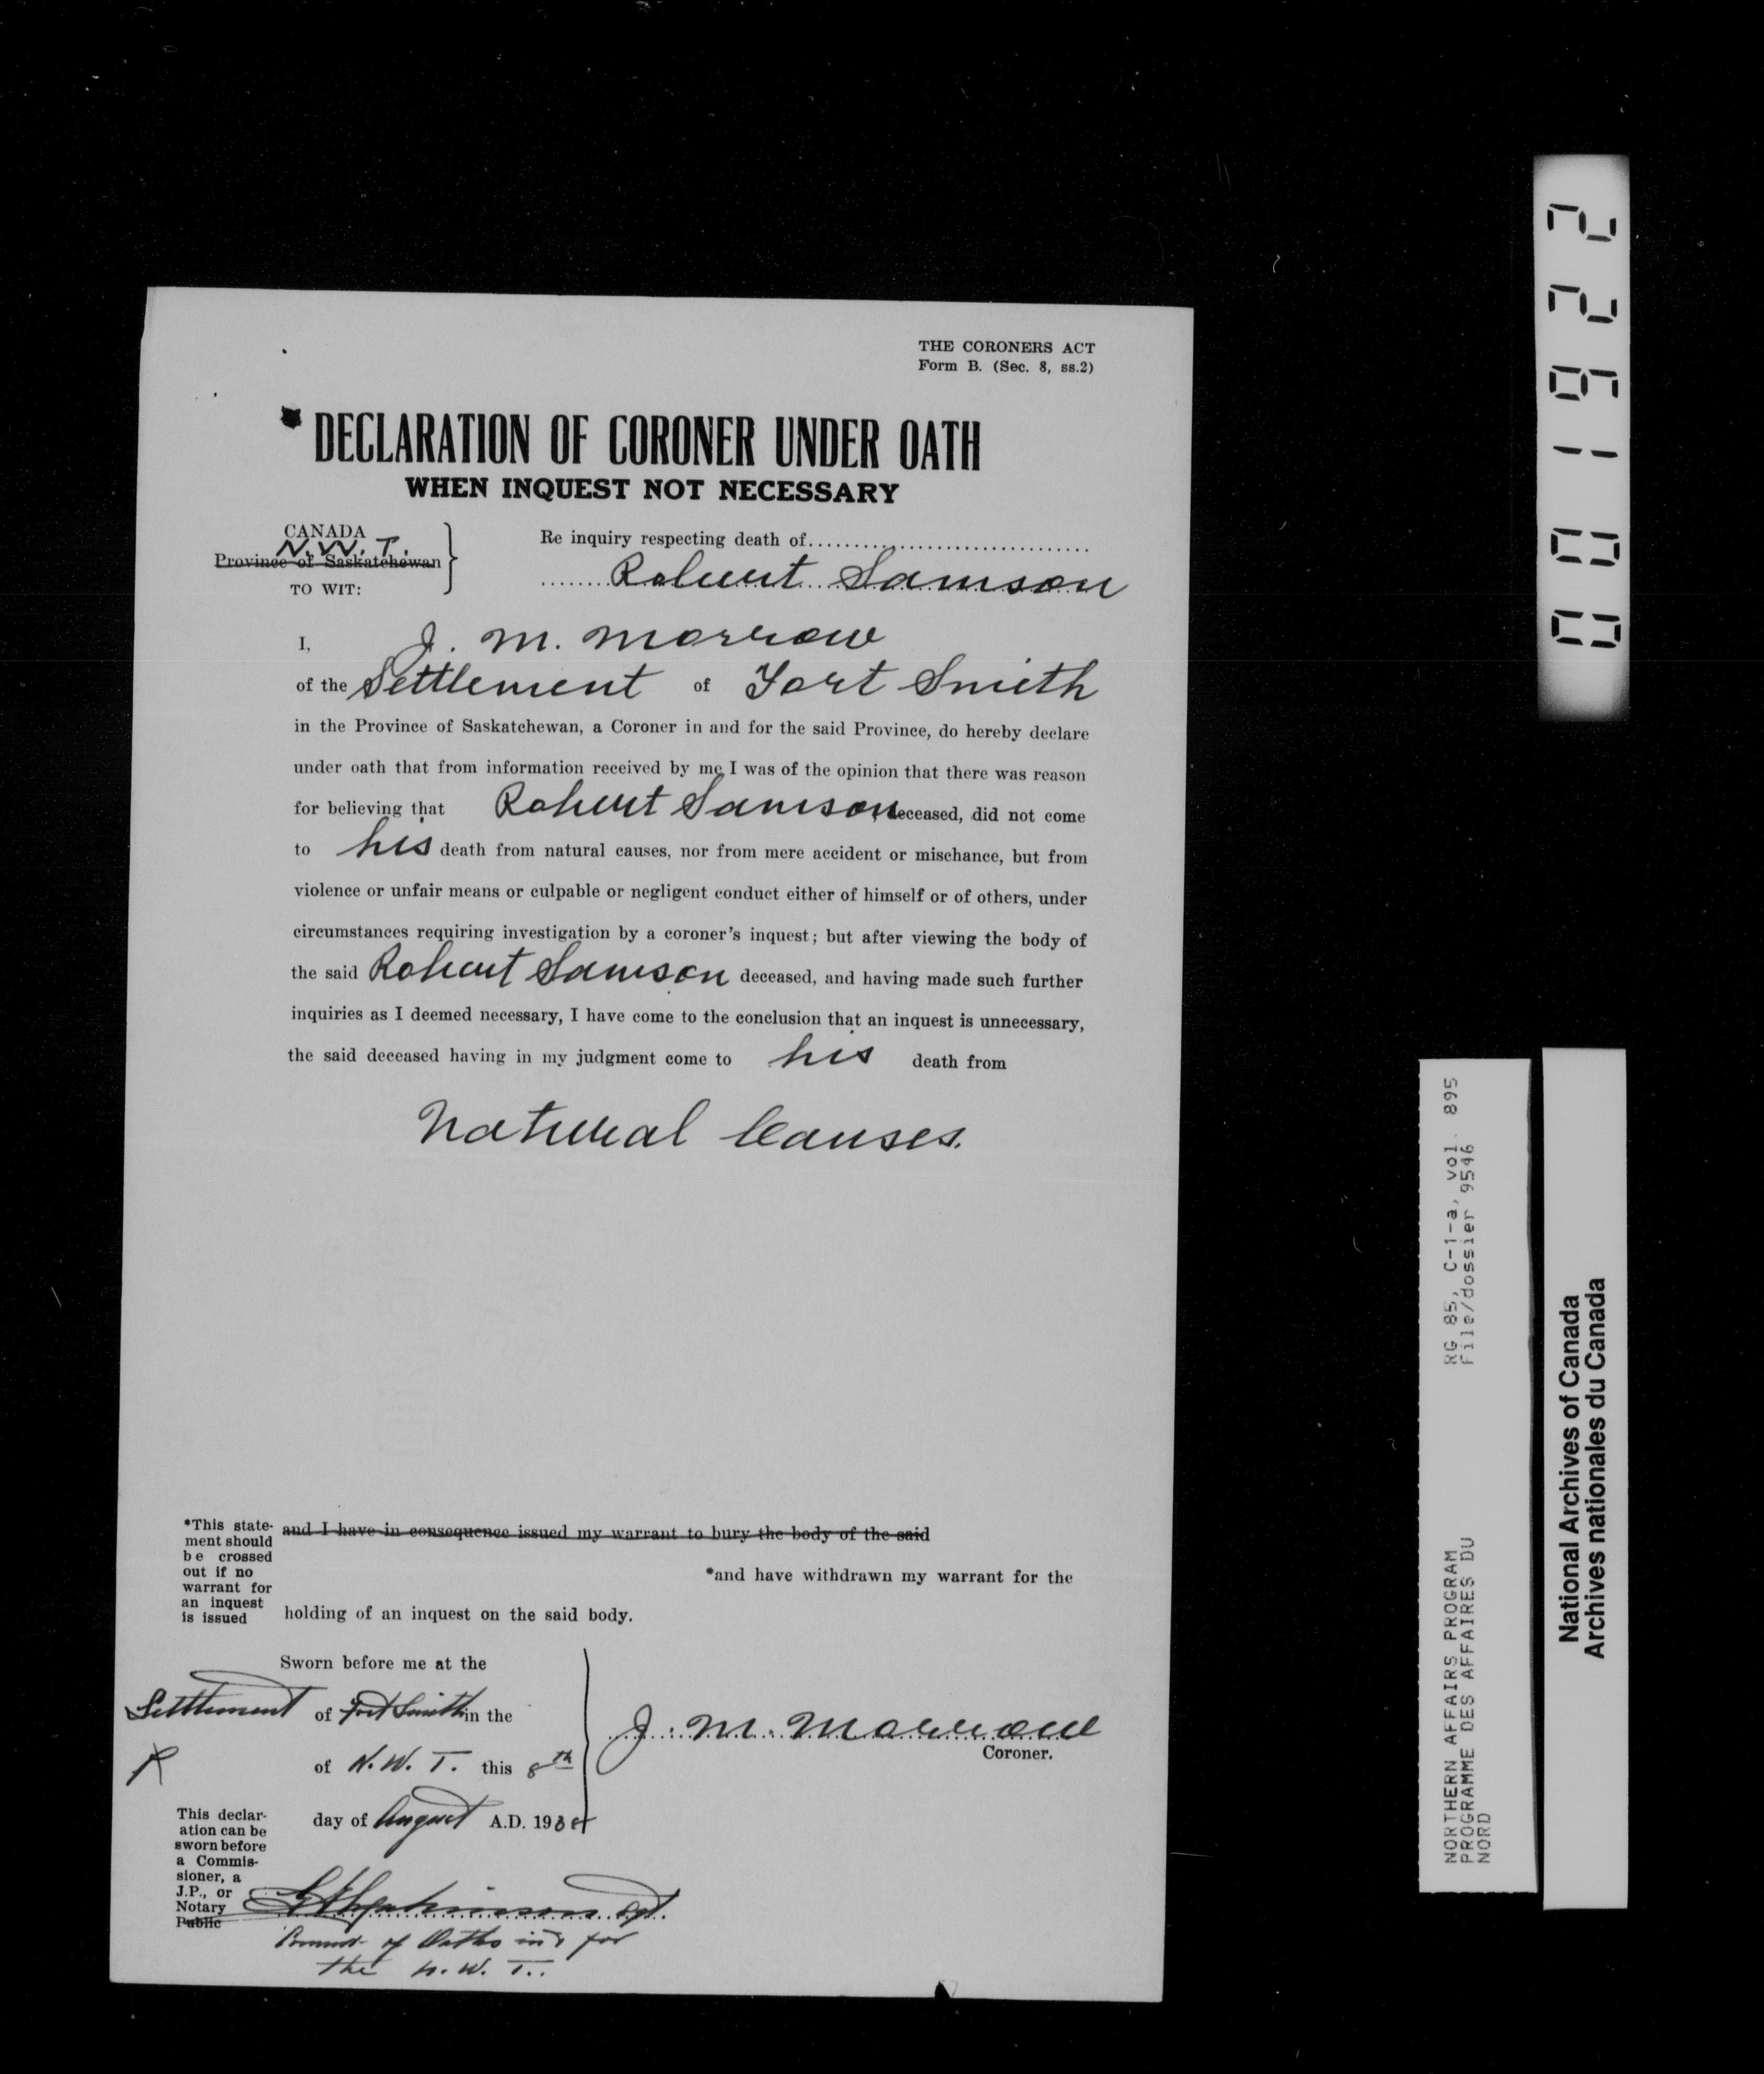 THE CORONERS ACT
Form B. (Sec. 8, ss.2)
DECLARATION OF CORONER UNDER OATH
WHEN INQUEST NOT NECESSARY
CANADA
N.W.T.
Province of Saskatchewan
TO WIT:
Re inquiry respecting death of
Robert Samson
I, J. M. Morrow
of the Settlement of Fort Smith
in the Province of Saskatchewan, a Coroner in and for the said Province, do hereby declare
under oath that from information received by me I was of the opinion that there was reason
for believing that Robert Samson, deceased, did not come
to his death from natural causes, nor from mere accident or mischance, but from
violence or unfair means or culpable or negligent conduct either of himself or of others, under
circumstances requiring investigation by a coroner's inquest; but after viewing the body of
the said Robert Samson deceased, and having made such further
inquiries as I deemed necessary, I have come to the conclusion that an inquest is unnecessary,
the said deceased having in my judgment come to his death from
Natural Causes.
*This state-
ment should
be crossed
out if no
warrant for
an inquest
is issued
and I have in consequence issued my warrant to bury the body of the said
*and have withdrawn my warrant for the
holding of an inquest on the said body.
Sworn before me at the
Settlement of Fort Smith in the
of N.W.T. this 8th
day of August A.D. 193
J. M. Morrow
Coroner.
This declar-
ation can be
sworn before
a Commis-
sioner, a
J.P., or
Notary
Public
of Oaths in & for
the N.W.T.
001922
RG 85, C-1-a, vol. 895
File/dossier 9546
NORTHERN AFFAIRS PROGRAM
PROGRAMME DES AFFAIRES DU
NORD
National Archives of Canada
Archives nationales du Canada